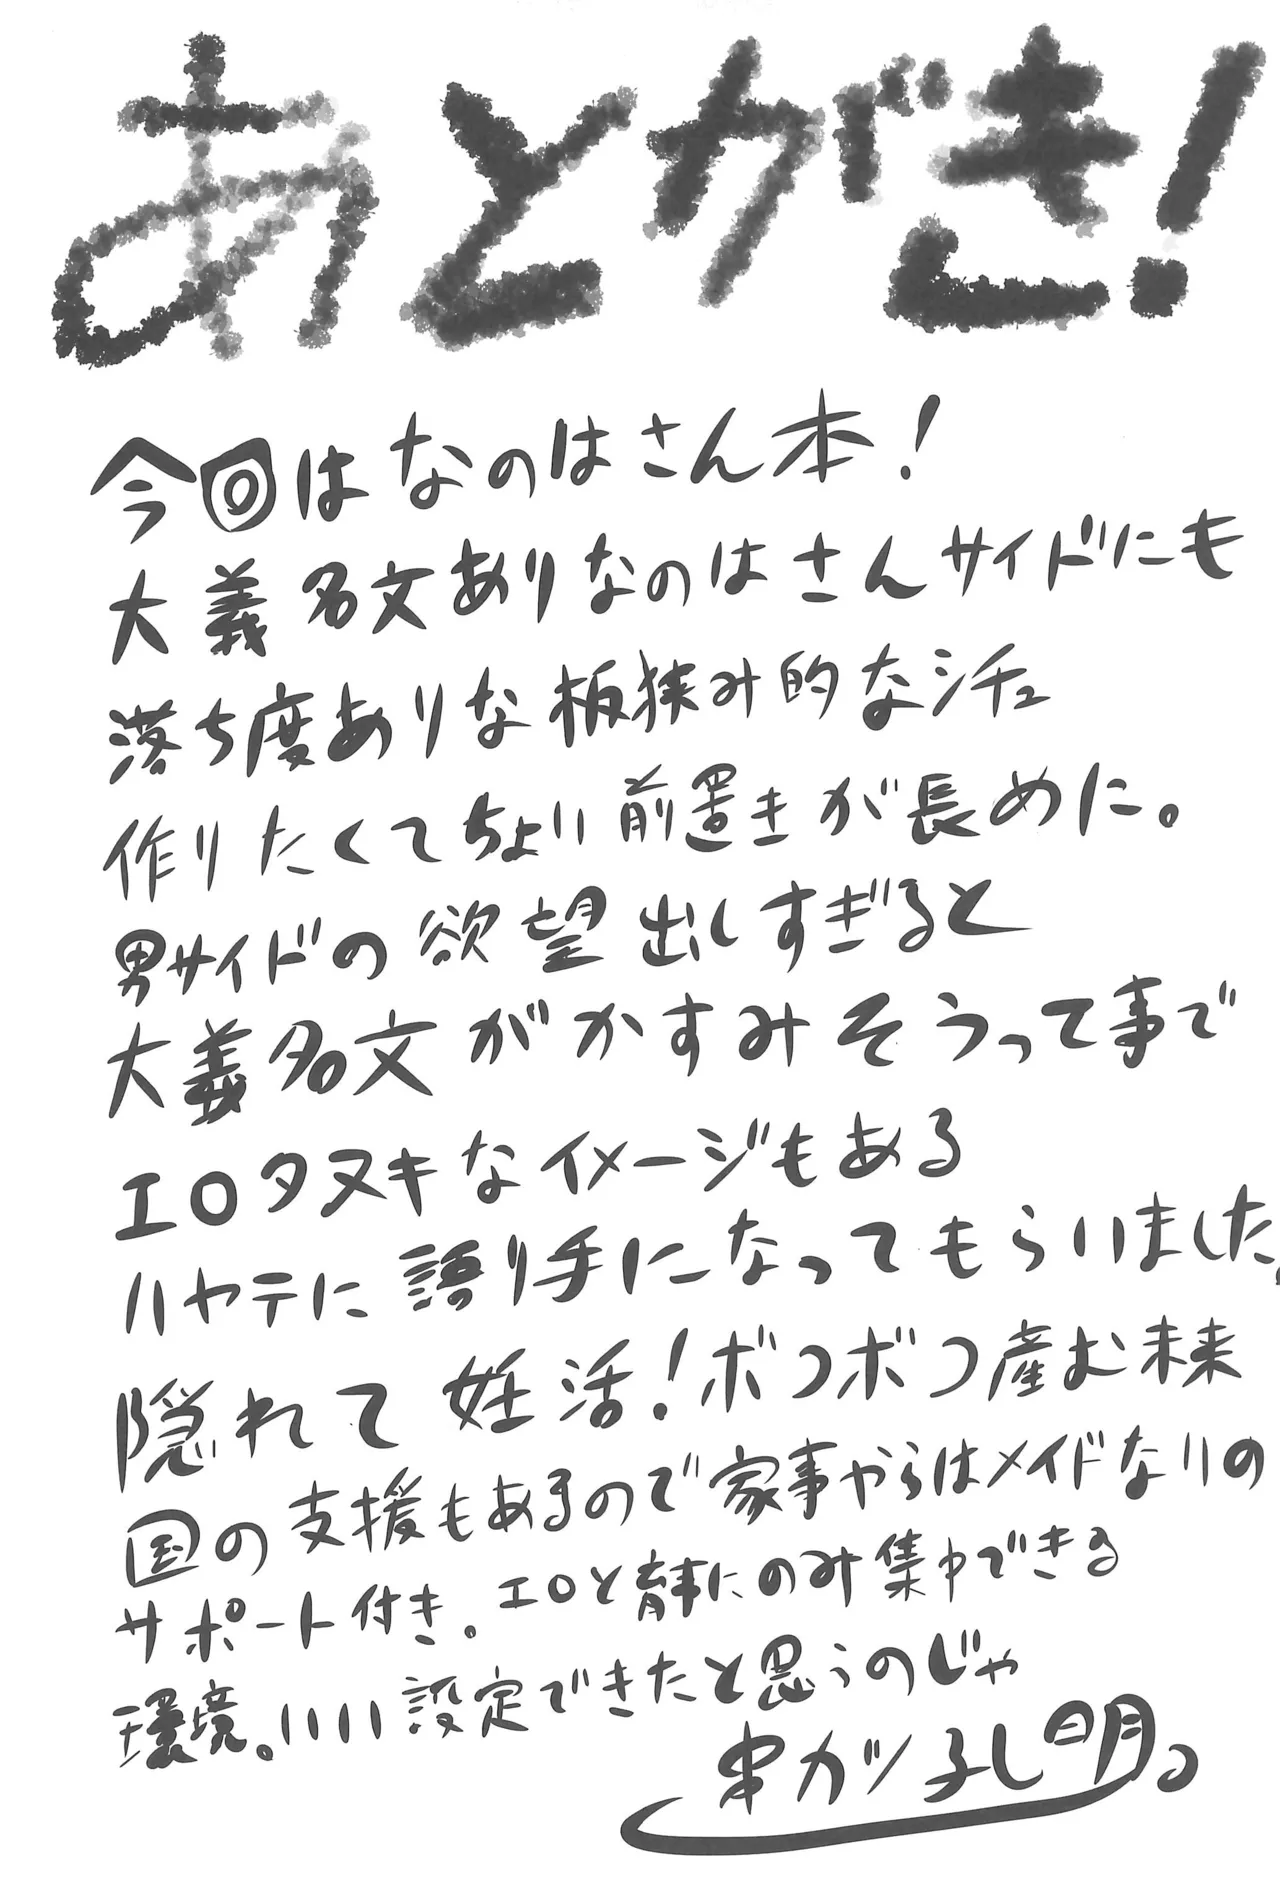 あとがき!
今回はなのはさん本!
大義名文ありなのはさんサイドにも
落ち度ありな板狭み的なシチュ
作りたくてちょい前置きが長めに。
男サイドの欲望出しすぎると
大義名文がかすみそうって事で
エロタヌキなイメージもある
ハヤテに語り手になってもらいました。
隠れて妊活!ボコボコ産む未来
国の支援もあるので家事からはメイドなりの
サポート付き。エロと育事にのみ集中できる
環境。いい設定できたと思うのじゃ
串カツ子し明。